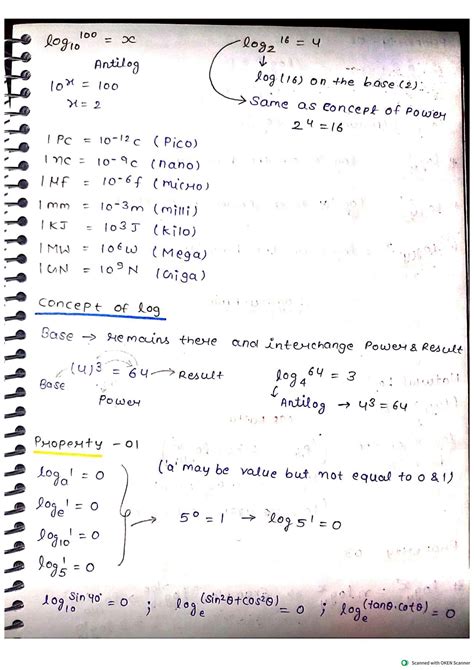 log₁₀¹⁰⁰ = x
Antilog
10ˣ = 100
x = 2
log₂¹⁶ = 4
↓
log(16) on the base (2).
→ Same as concept of Power
2⁴ = 16
1 PC = 10⁻¹²C (Pico)
1 nc = 10⁻⁹C (nano)
1 μf = 10⁻⁶f (micro)
1 mm = 10⁻³m (milli)
1 KJ = 10³J (kilo)
1 MW = 10⁶W (Mega)
1 GN = 10⁹N (Giga)
Concept of log
Base → remains there and interchange Power & Result
(4)³ = 64 → Result
Base
Power
log₄⁶⁴ = 3
Antilog → 4³ = 64
Property - 01
logₐ¹ = 0
logₑ¹ = 0
log₁₀¹ = 0
log₅¹ = 0
('a' may be value but not equal to 0 & 1)
→ 5⁰ = 1 → log₅¹ = 0
log₁₀ = 0 ; logₑ^(sin²θ+cos²θ) = 0 ; logₑ^(tanθ.cotθ) = 0
Scanned with OKEN Scanner